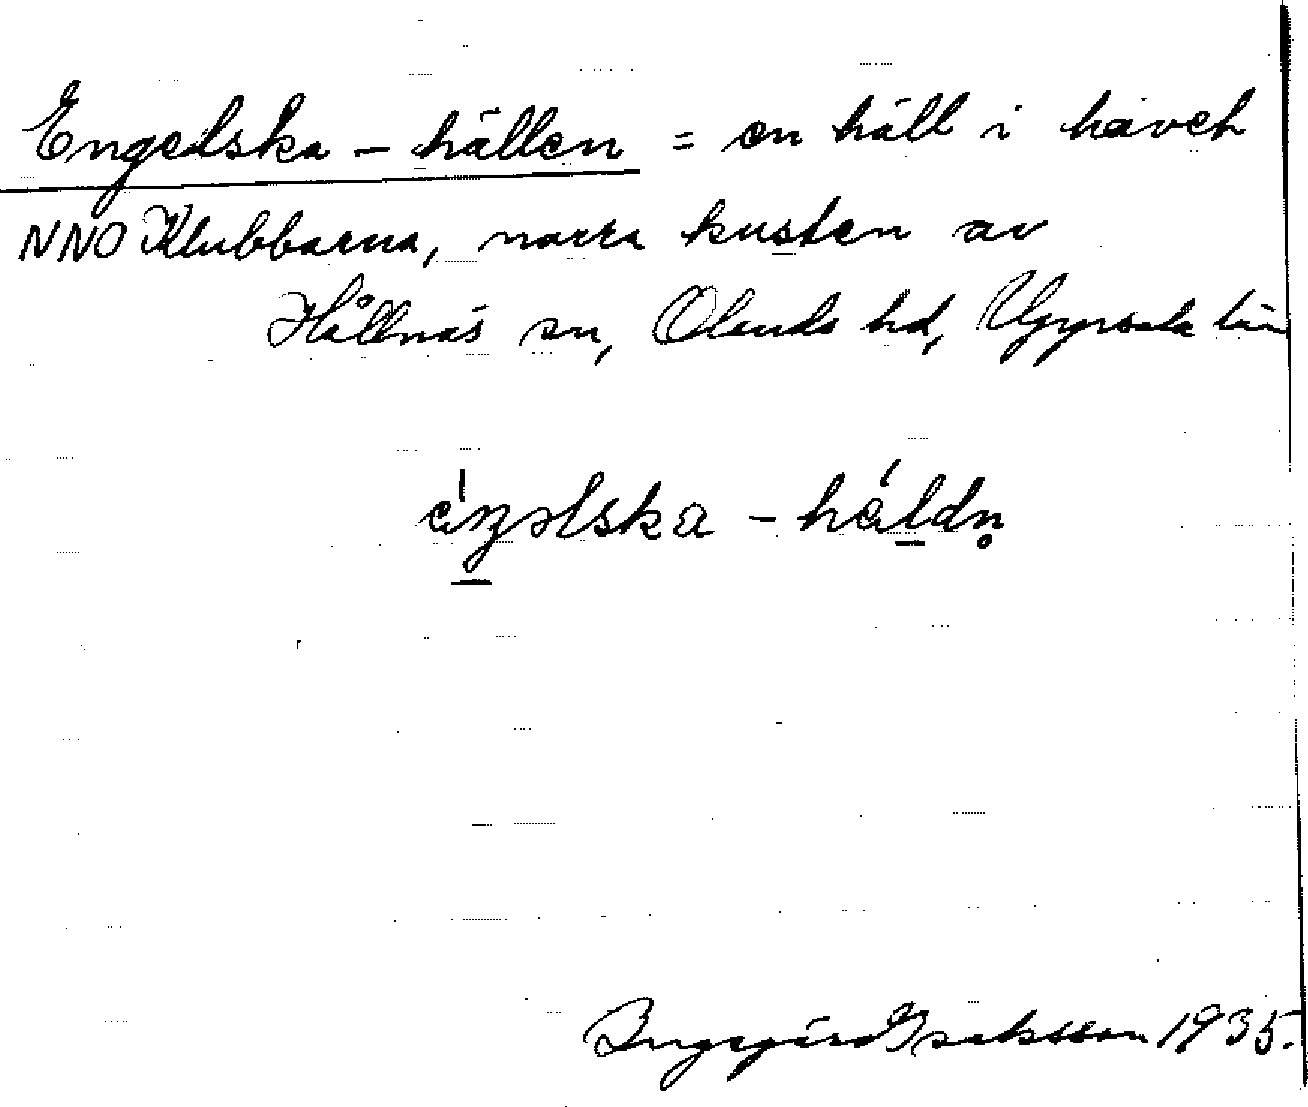 Engelska - hällen = en häll i havet
NNO Klubbarna, norra kusten av
Hållnäs sn, Olands hd, Uppsala län
-häldn̥
Ingegärd Isaksson 1935.